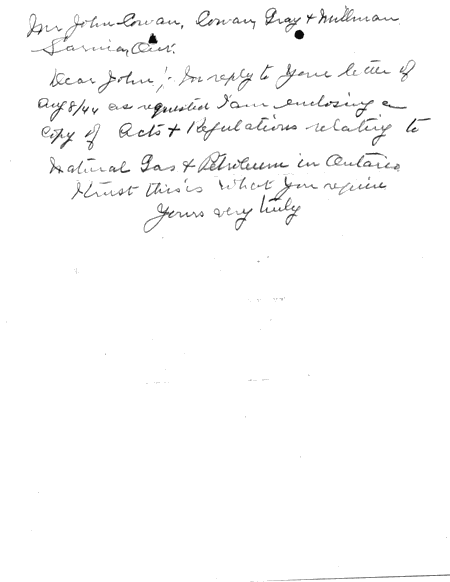 Mr John Cowan, Cowan, Gray & Millman
Sarnia, Ont.
Dear John;- In reply to your letter of
Aug 8/44 as requested I am enclosing a
Copy of Acts & Regulations relating to
Natural Gas & Petroleum in Ontario
I trust this is what you require
Yours very truly